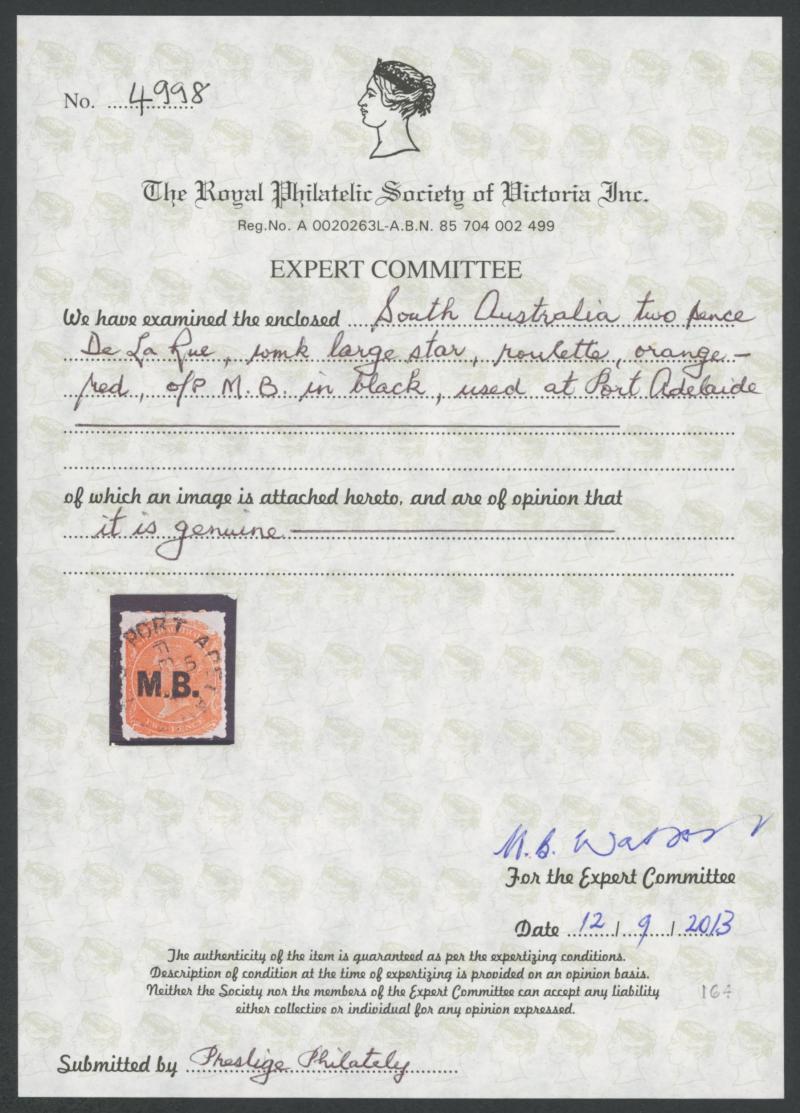 No. 4998
The Royal Philatelic Society of Victoria Inc.
Reg.No. A 0020263L-A.B.N. 85 704 002 499
EXPERT COMMITTEE
We have examined the enclosed South Australia two pence
De La Rue, wmk large star, roulette, orange-
red, o/p M.B. in black, used at Port Adelaide
of which an image is attached hereto, and are of opinion that
it is genuine
PORT ADELA
FE 5
M.B.
TWO PENCE
M.B. Watson
For the Expert Committee
Date 12 / 9 / 2013
The authenticity of the item is guaranteed as per the expertizing conditions.
Description of condition at the time of expertizing is provided on an opinion basis.
Neither the Society nor the members of the Expert Committee can accept any liability
either collective or individual for any opinion expressed.
Submitted by Prestige Philately